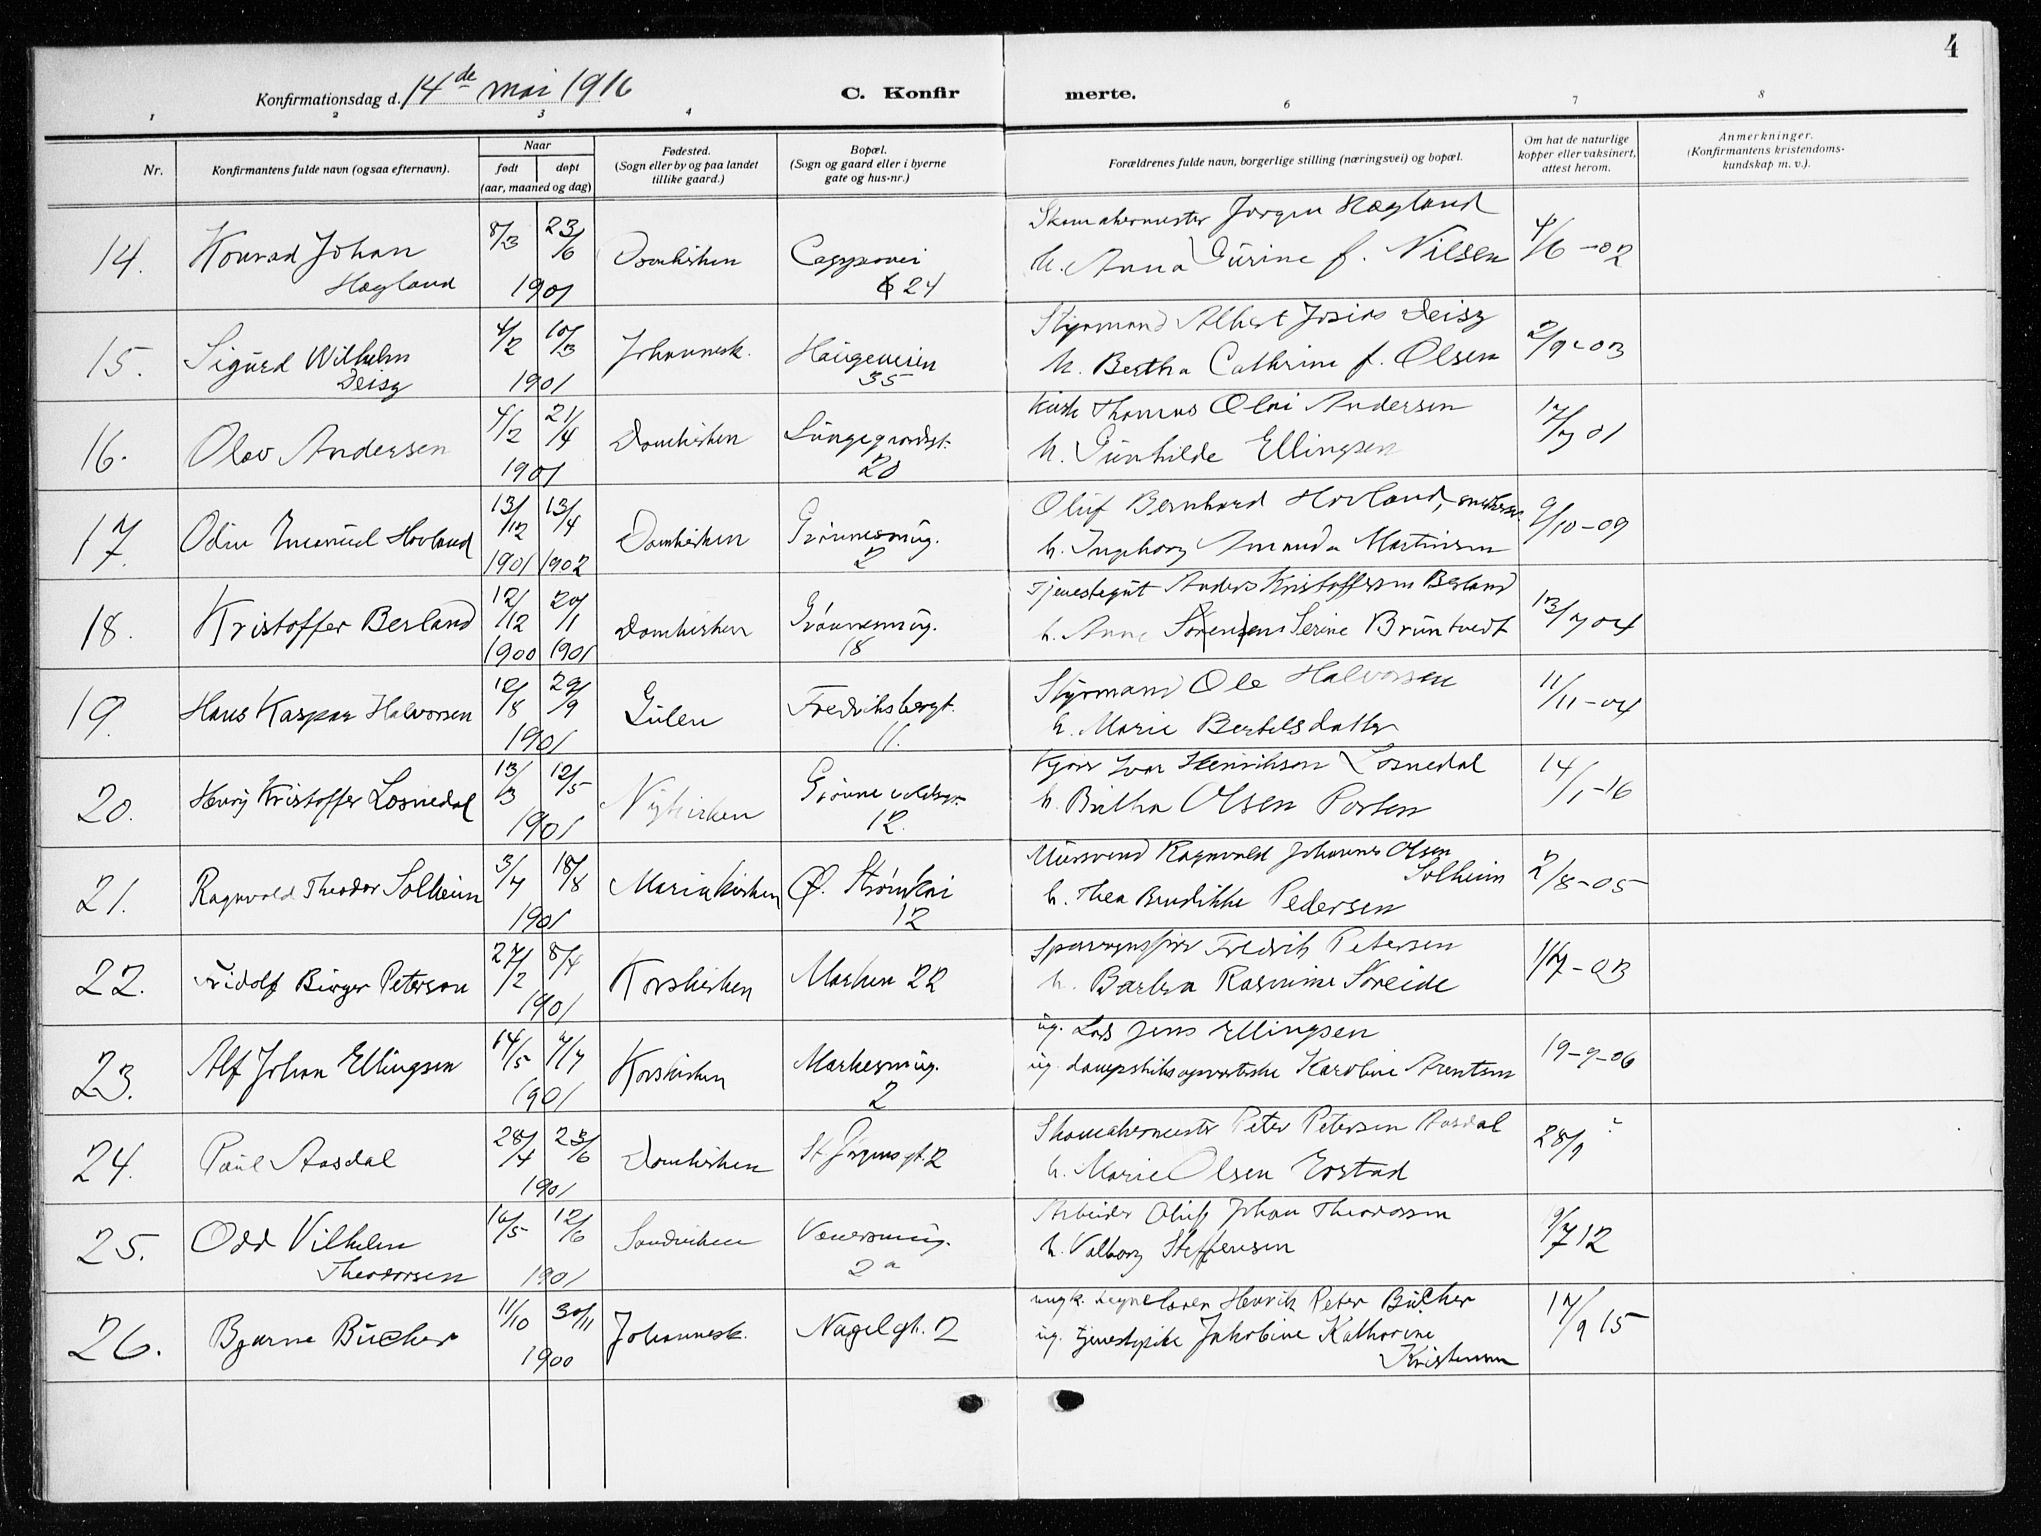 4
Konfirmationsdag d. 14de mai 1916 C. Konfirmerte.
1 2 3 4 6 7 8
Nr. Konfirmantens fulde navn (ogsaa efternavn). Naar født døpt (aar, maaned og dag) Fødested. (Sogn eller by og paa landet tillike gaard.) Bopæl. (Sogn og gaard eller i byerne gate og hus-nr.) Forældrenes fulde navn, borgerlige stilling (næringsvei) og bopæl. Om hat de naturlige kopper eller vaksinert, attest herom. Anmerkninger. (Konfirmantens kristendoms-kundskap m. v.).
14. Konrad Johan Hagland 8/3 23/6 1901 Domkirken 24 Skomakermester Jørgen Hagland
h. Anna Gurine f. Nilsen 4/6-02
15. Sigurd Wilhelm Deisz 4/2 10/3 1901 Johannesk. Haugeveien 35 Styrmand Albert Josias Deisz
h. Bertha Cathrine f. Olsen 2/9-03
16. Olav Andersen 4/2 21/4 1901 Domkirken 20 Thomas Olai Andersen
h. Gunhilde Ellingsen 17/7 01
17. Odin Emanuel Hovland 13/12 1901 13/4 1902 Domkirken Grønnesmug. 2 Oluf Bernhard Hovland,
h. Ingeborg Amanda Martinsen 9/10-09
18. Kristoffer Berland 12/12 1900 20/1 1901 Domkirken Grønnesmug. 18 Tjenestegut Anders Kristoffersen Berland
h. Anne Sørensen Serine Bruntvedt 13/7 04
19. Hans Kaspar Halvorsen 12/8 29/9 1901 Gulen Fredriksbergt. 11. Styrmand Ole Halvorsen
h. Marie Bertelsdatter 11/11-04
20. Henry Kristoffer Losnedal 13/3 12/5 1901 Nykirken 12. Ivar Henrikson Losnedal
h. Brita Olsen Porten 14/1-16
21. Ragnvald Theodor Solheim 3/7 18/8 1901 Mariakirken Ø. Strømkai 12 Mursvend Ragnvald Johannes Olsen Solheim
h. Thea Bendikke Pedersen 2/8-05
22. Fridolf Birger Peterson 27/2 8/4 1901 Korskirken Marken 22 Fredrik Petersen
h. Barbra Rasmine Søreide 1/7-03
23. Alf Johan Ellingsen 14/5 7/7 1901 Korskirken Markesmug. 2 ug. Lods Jens Ellingsen
ug. dampskibsopvartske Karoline Arentsen 19-9-06
24. Paul Aasdal 28/4 23/6 1901 Domkirken St Jørgensgt. 2 Skomakermester Peter Petersen Aasdal
h. Marie Olsen Erstad 28/9 ?
25. Odd Vilhelm Theodorsen 16/5 12/6 1901 Sandviken 2a Arbeider Oluf Johan Theodorsen
h. Valborg Steffensen 9/7 12
26. Bjarne Bücher 11/10 30/11 1900 Johannesk. Nagelgt. 2 ungk. Henrik Peter Bücher
ug. tjenestepike Jakobine Katharine Kristensen 17/9 15